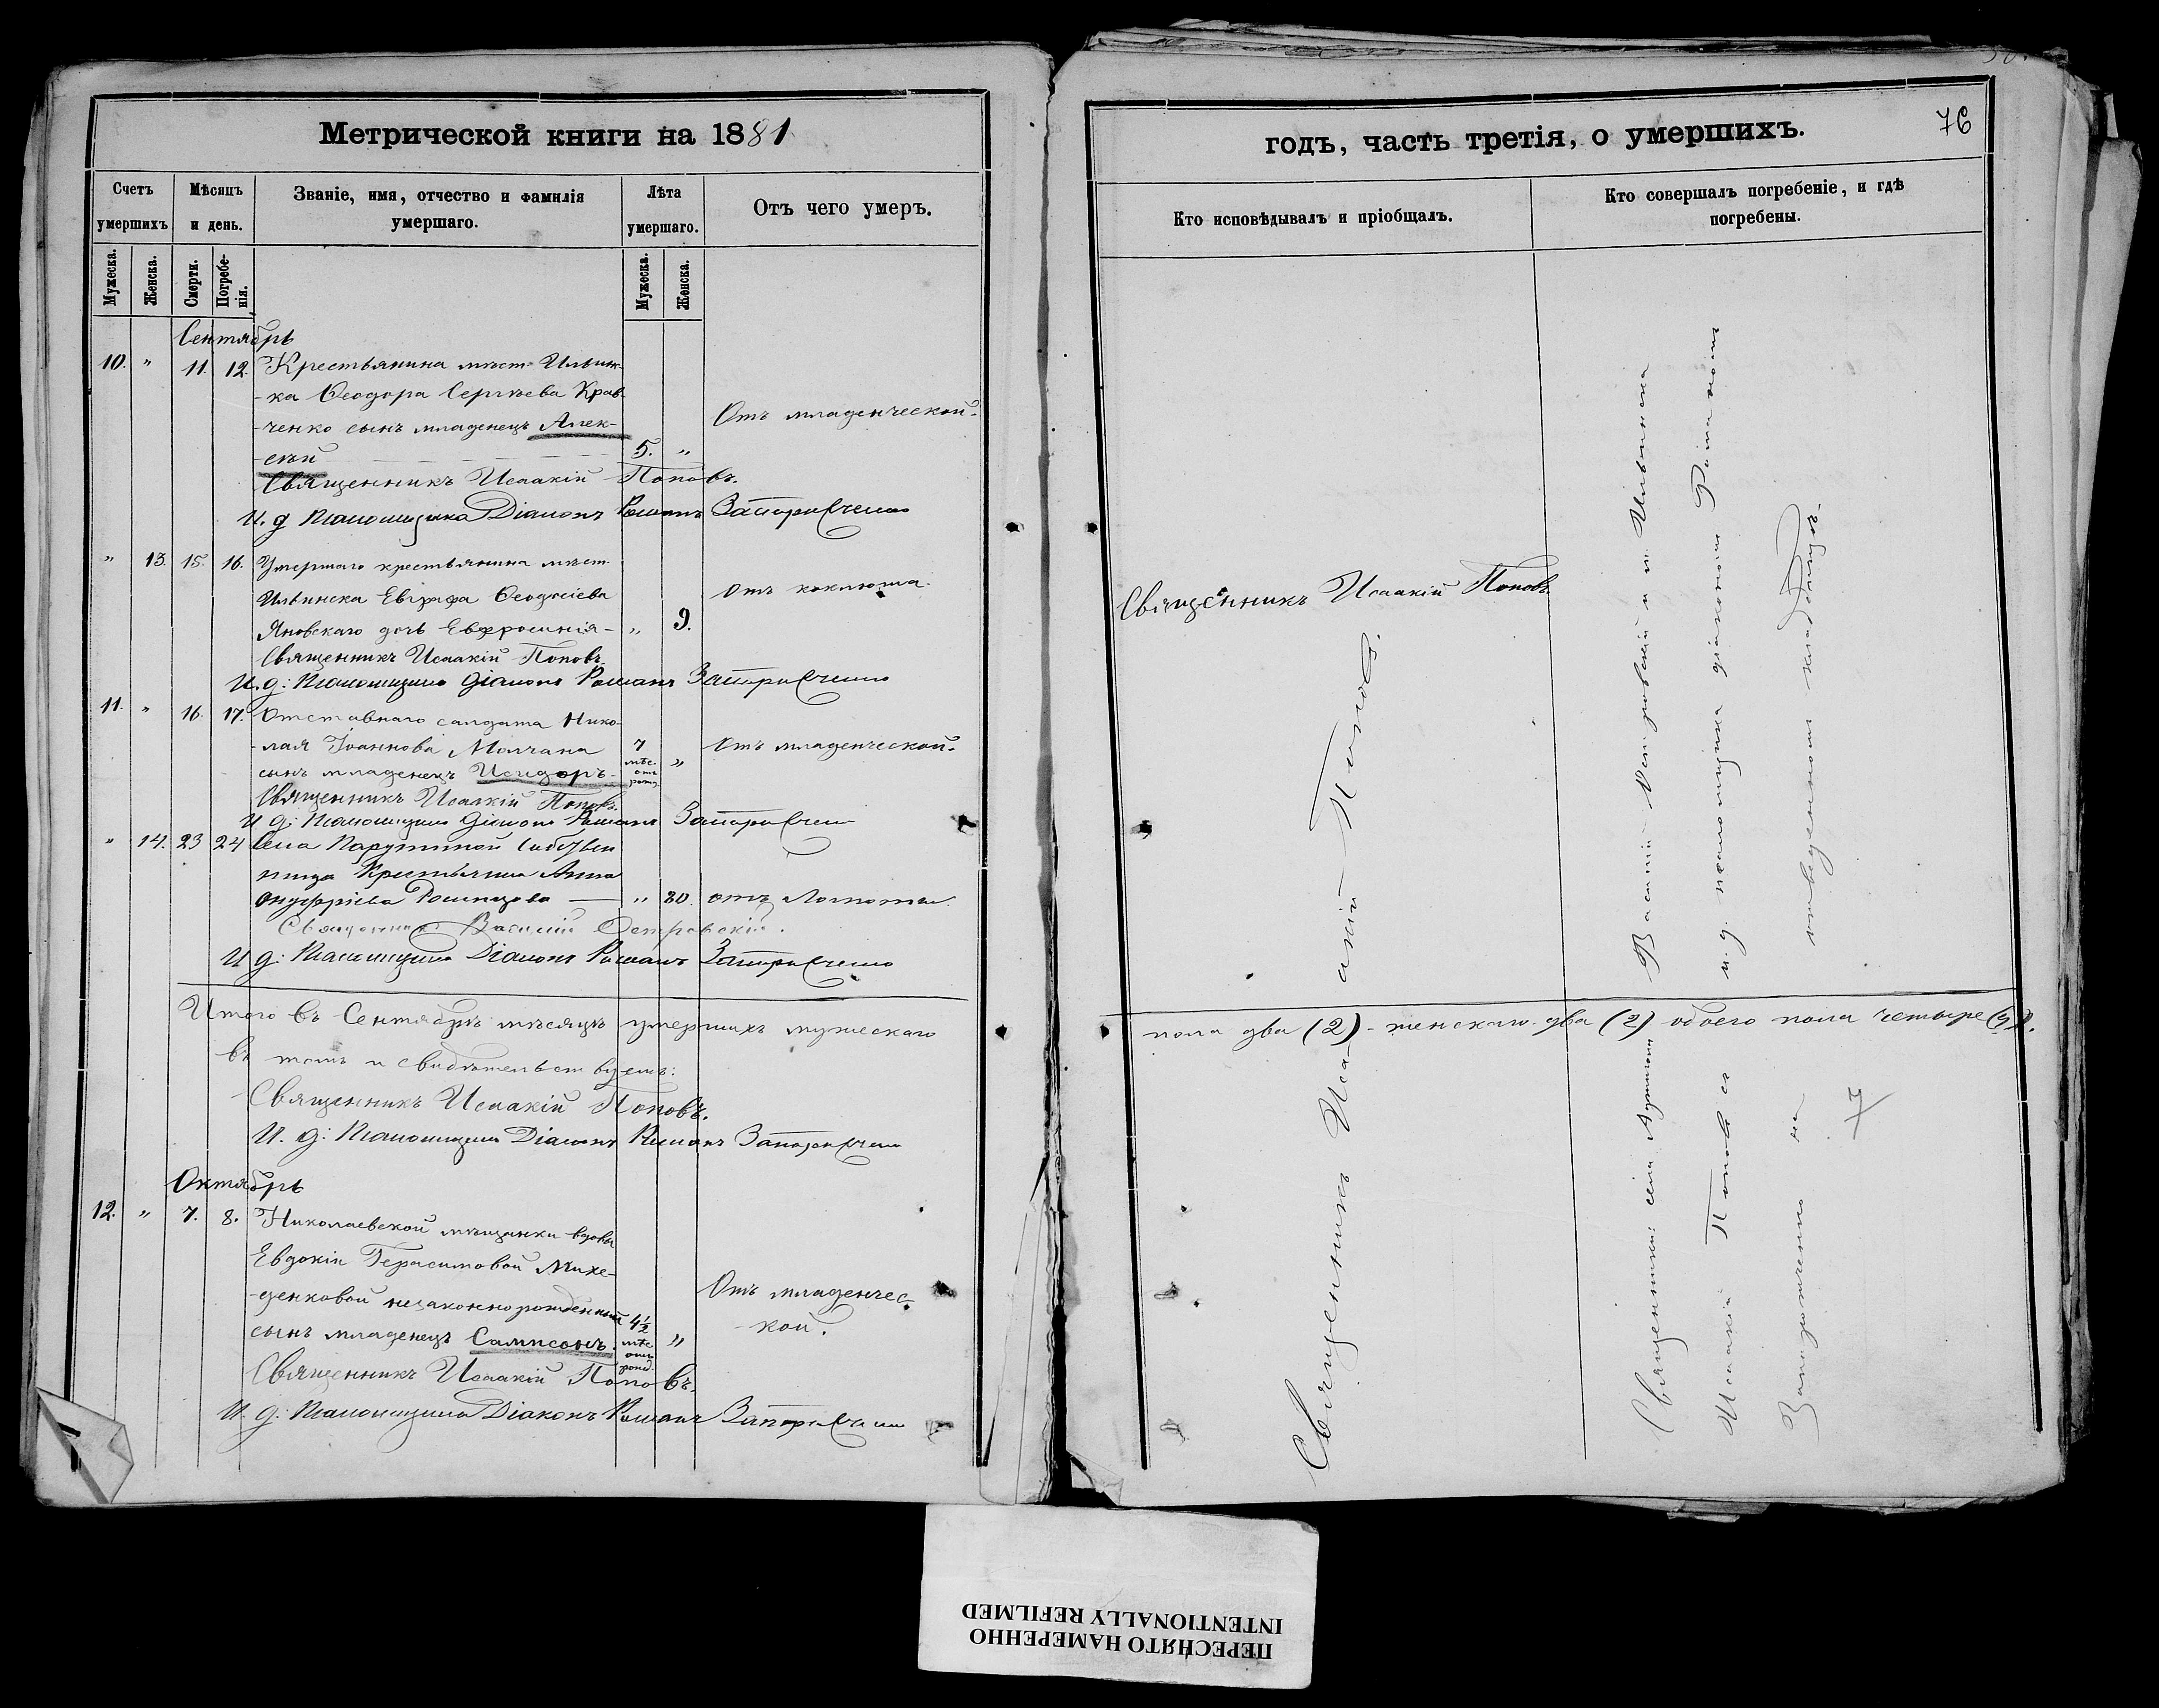 Метрической книги на 1881
Счетъ умершихъ
Мѣсяцъ и день.
Званіе, имя, отчество и фамилія умершаго.
Лѣта умершаго.
Отъ чего умеръ.
Мужеска.
Женска.
Смерти.
Погребенія.
Мужеска.
Женска.
Сентябрь
10. " 11. 12. Крестьянина мѣст. Ильин-
-ка Ѳеодора Сергѣева Крав-
-ченко сынъ младенецъ Алек-
-сѣй 5. "
Отъ младенческой.
Священникъ Исаакій Поповъ.
И. д. Псаломщика Діаконъ Романъ Запорожченко
" 13. 15. 16. Умершаго крестьянина мѣст.
Ильинска Евграфа Ѳеодосіева
Яновскаго дочь Евфросинія - " 9.
Отъ коклюша.
Священникъ Исаакій Поповъ.
И. д: Псаломщика Діаконъ Романъ Запорожченко
11. " 16. 17. Отставнаго солдата Нико-
-лая Іоаннова Молчана
сынъ младенецъ Исидоръ - 7 мѣс. отъ рожд. "
Отъ младенческой.
Священникъ Исаакій Поповъ.
И д: Псаломщика Діаконъ Романъ Запорожченко
" 14. 23 24 Села
крестьянина Анна
Онуфріева — " 80. отъ
Священникъ Василій Петровскій.
И д: Псаломщика Діаконъ Романъ Запорожченко
Итого въ Сентябрѣ мѣсяцѣ умершихъ мужескаго
въ томъ и свидѣтельствуемъ:
Священникъ Исаакій Поповъ.
И. д: Псаломщика Діаконъ Романъ Запорожченко
Октябрь
12. " 7. 8. Николаевской мѣщанки вдовы
Евдокіи Герасимовой Михе-
-денковой незаконнорожденный
сынъ младенецъ Сампсонъ. 4½ мѣс. отъ рожд. "
Отъ младенчес-
-кой.
Священникъ Исаакій Поповъ.
И. д: Псаломщика Діаконъ Романъ Запорожченко
годъ, часть третія, о умершихъ.
76
Кто исповѣдывалъ и пріобщалъ.
Кто совершалъ погребеніе, и гдѣ погребены.
Священникъ Исаакій Поповъ
Священникъ Исаакій Поповъ.
Священники: села Василій Петровскій и м. Ильинска
Исаакій Поповъ съ и. д. псаломщика діакономъ Романомъ
Запорожченко на отведенномъ кладбищѣ.
пола два (2) - женскаго два (2) обоего пола четыре (4).
7
ПЕРЕСНЯТО НАМЕРЕННО
INTENTIONALLY REFILMED